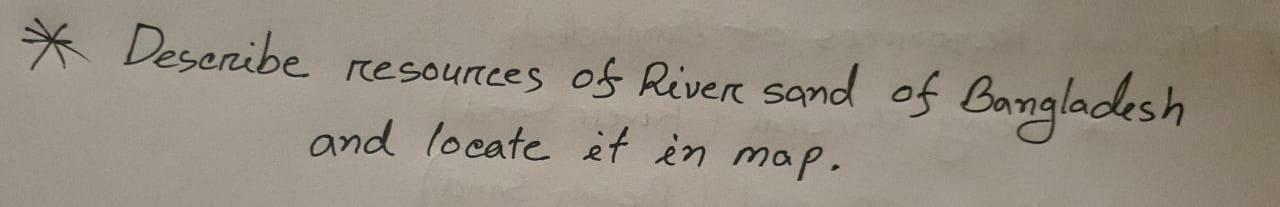 * Describe resources of River sand of Bangladesh
and locate it in map.